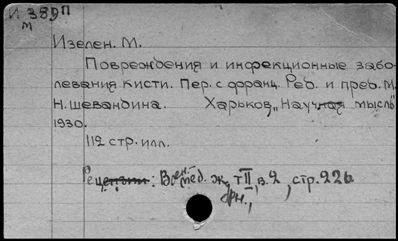 И 389П
м
Изелен. М.
Повреждения и инфекционные забо-
левания кисти. Пер. с франц. Ред. и пред. М.
Н. Шевандина. Харьков, „Научная мысль"
1930.
112 стр. илл.
Рец : Воен. мед. ж. т II, в. 2, стр. 226